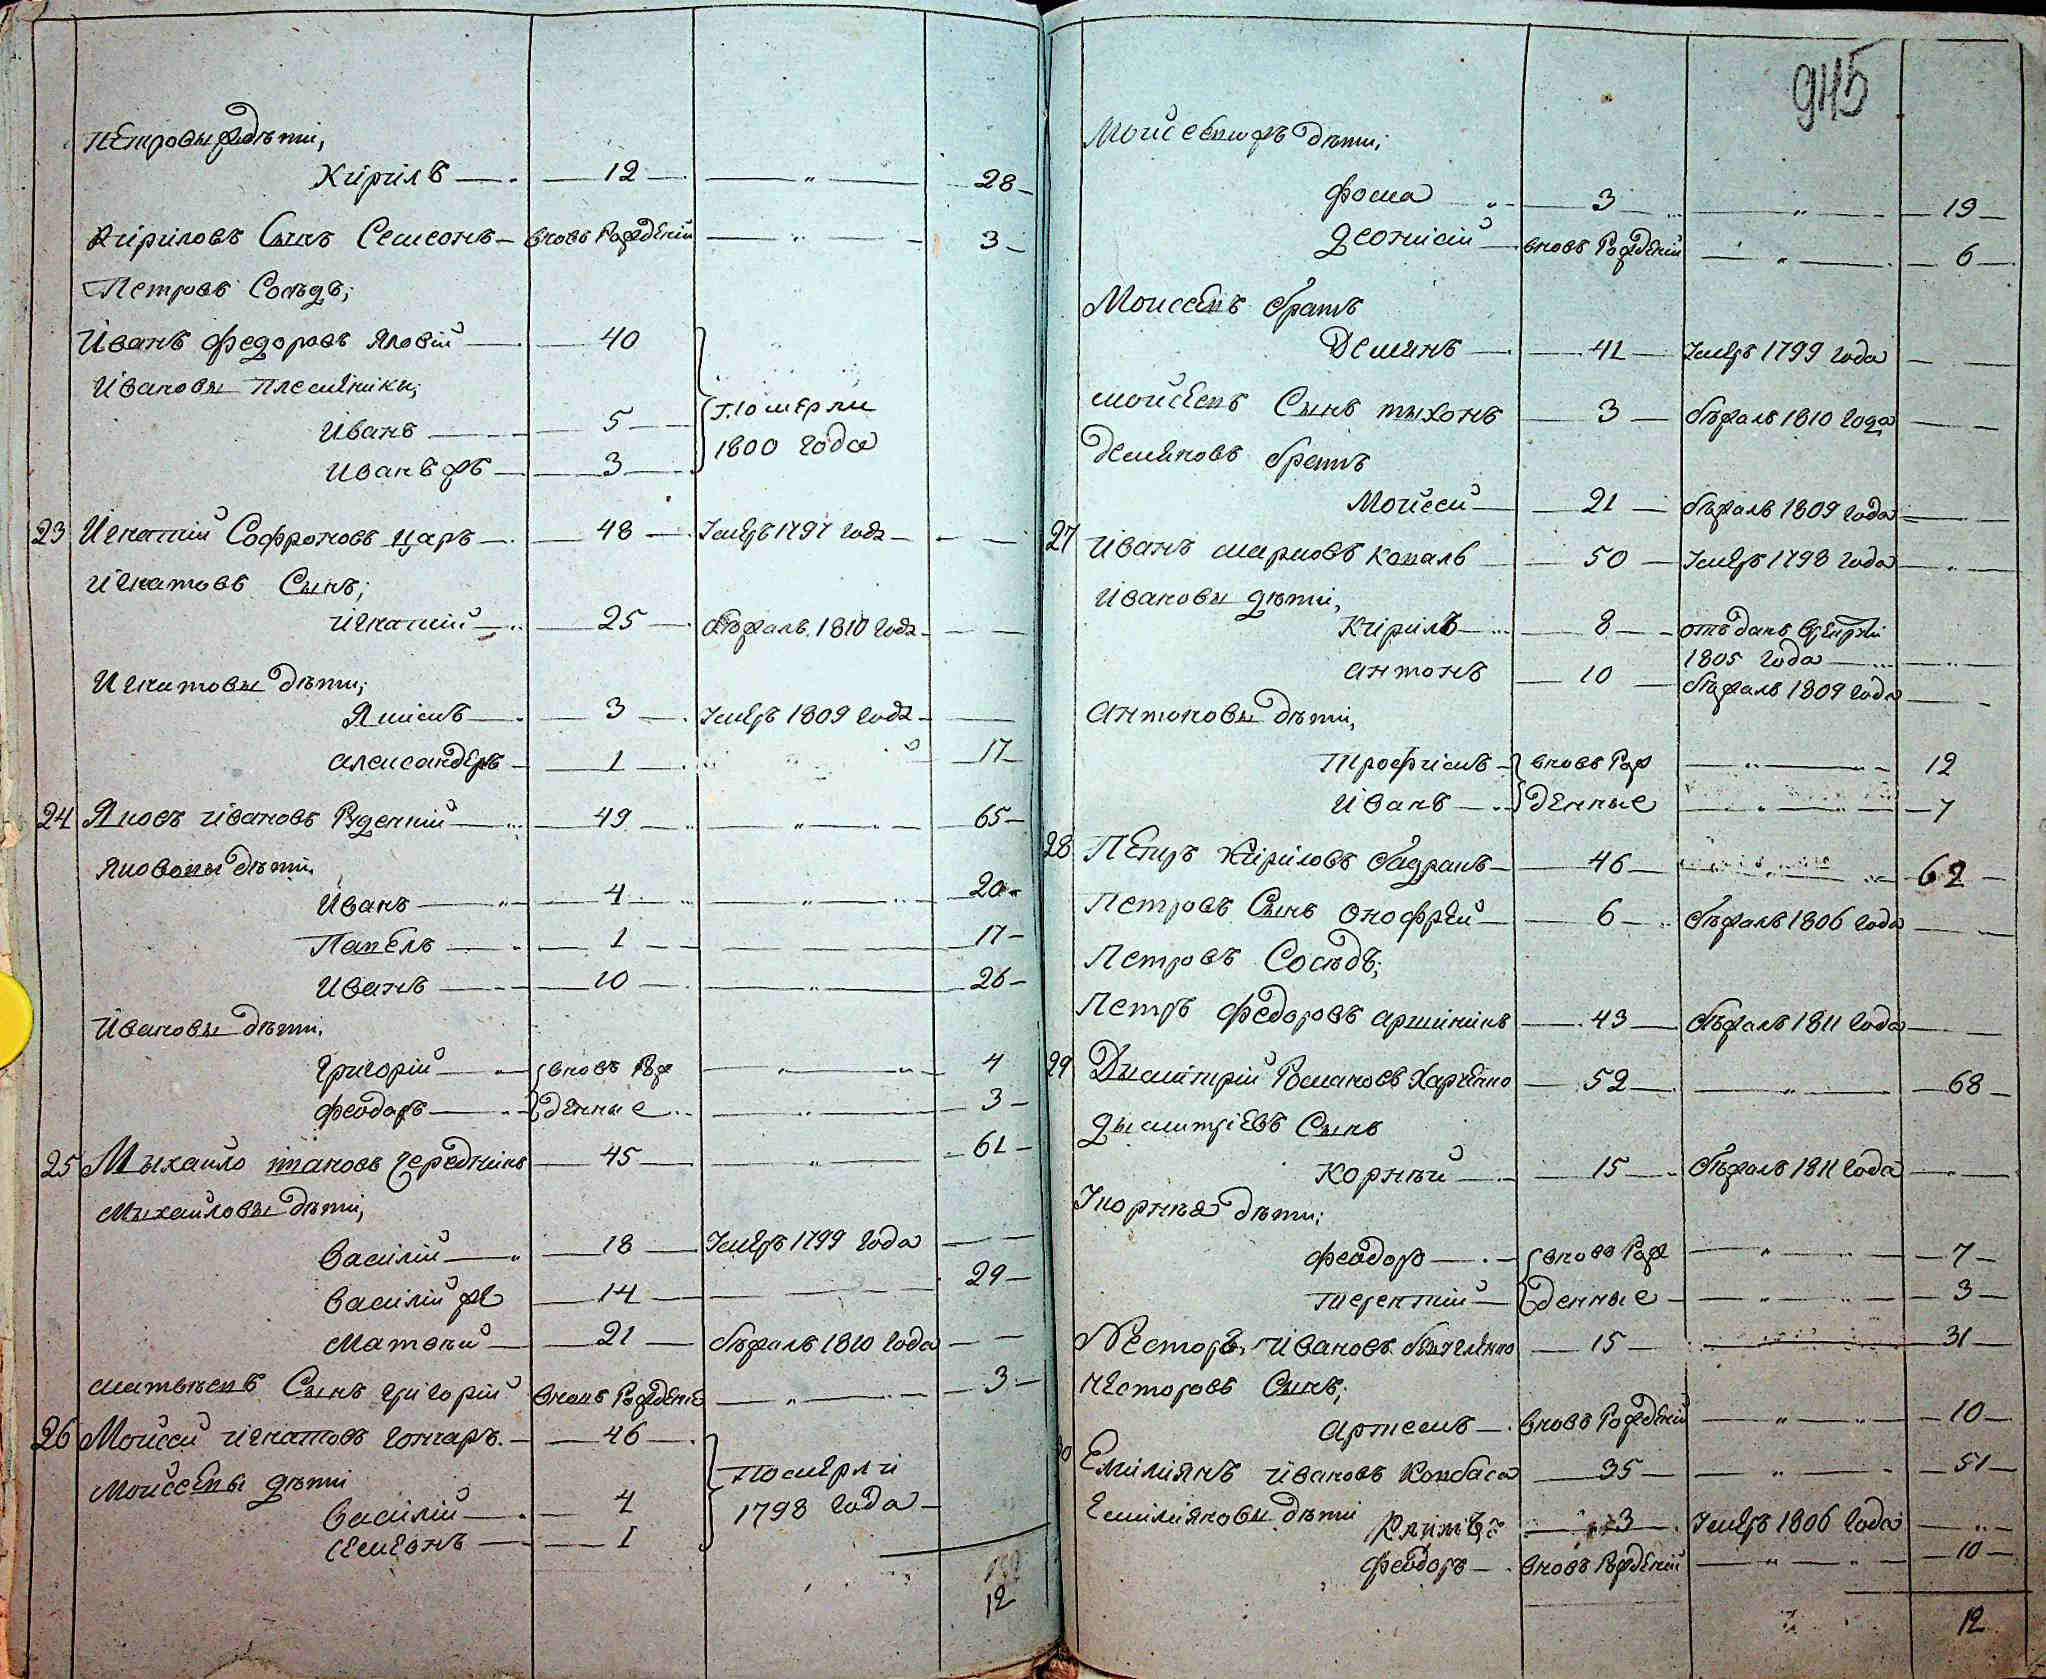 Петровы дѣти;
Кирилъ — 12 — „ — 28
Кириловъ Сынъ Семенъ — вновь Рожденій — „ — 3
Петровъ Сосѣдъ;
Иванъ Федоровъ Яловій — 40
Ивановы племеники;
Иванъ — 5 — Померли
Иванъ же — 3 — 1800 года
23 Игнатій Софроновъ Царъ — 48 — Умеръ 1797 года — —
Игнатовъ Сынъ;
Игнатій — 25 — бѣжалъ 1810 года — —
Игнатовы дѣти;
Якимъ — 3 — Умеръ 1809 года —
Александеръ — 1 — 17
24 Яковъ Ивановъ Руденкій — 49 — „ — 65
Яковovы дѣти
Иванъ — 4 — „ — 20
Павелъ — 1 — — 17
Иванъ — 10 — „ — 26
Ивановы дѣти.
Григорій — вновь Рож — „ — 4
Феодоръ — денные — „ — 3
25 Мыхайло Ивановъ Чередникъ — 45 — „ — 61
Мыхайловы дѣти;
Василій — 18 — Умеръ 1799 года — —
Василій же — 14 — — 29
Матвѣй — 21 — бѣжалъ 1810 года — —
Матвѣевъ Сынъ Григорій вновь Рожденъ — „ — 3
26 Мойсей Игнатовъ Гончаръ — 46
Мойсеевы дѣти
Василій — 4 — Померли
Семенъ — 1 — 1798 года
12
945
Мойсеевыжъ дѣти;
Фома — 3 — „ — 19
Деонисій — вновь Рожденій — „ — 6
Моисеевъ братъ
Деминъ — 41 — Умеръ 1799 года — —
Мойсеевъ Сынъ Тыхонъ — 3 — бѣжалъ 1810 года — —
Деминовъ братъ
Мойсей — 21 — бѣжалъ 1809 года — —
27 Иванъ Марковъ Коваль — 50 — Умеръ 1798 года — —
Ивановы дѣти,
Кирилъ — 8 — отъданъ
1805 года — —
Антонъ — 10 — бѣжалъ 1809 года —
Антоновы дѣти,
Трофимъ — вновь Рож — „ — 12
Иванъ — денные — „ — 7
28 Петръ Кириловъ — 46 — „ — 62
Петровъ Сынъ Онофрей — 6 — бѣжалъ 1806 года — —
Петровъ Сосѣдъ;
Петръ Федоровъ Аршиникъ — 43 — бѣжалъ 1811 года — —
29 Дымитрій Романовъ Харченко — 52 — „ — 68
Дымитріевъ Сынъ
Корнѣй — 15 — бѣжалъ 1811 года — —
Корнѣя дѣти;
Феодоръ — вновь Рож — „ — 7
Терентій — денные — „ — 3
Несторъ Ивановъ — 15 — 31
Несторовъ Сынъ;
Артемъ — вновь Рожденій — „ — 10
30 Емиліянъ Ивановъ Ковбаса — 35 — „ — 51
Емиліяновы дѣти
Климъ — 3 — Умеръ 1806 года — —
Феодоръ — вновь Рожденій — „ — 10
12